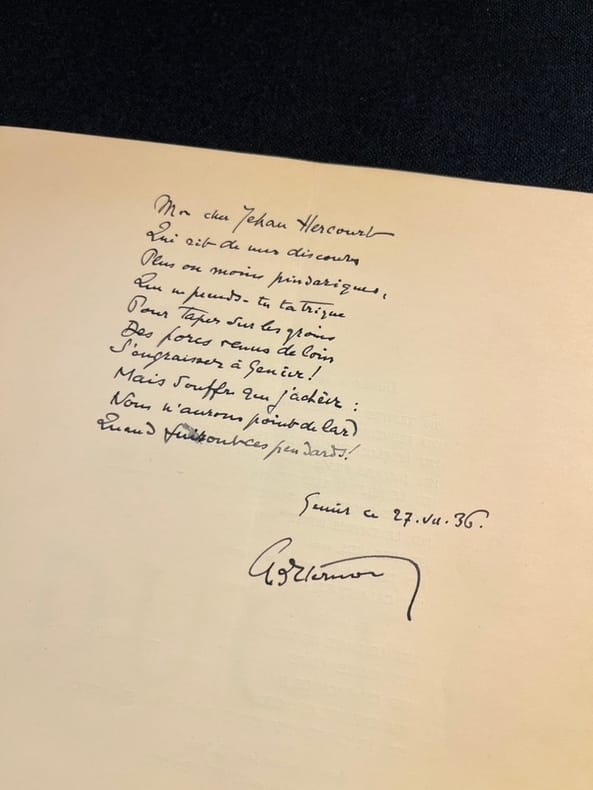 Mon cher Jehan Hercourt
Qui rit de mes discours
Plus ou moins pindariques,
Que ne prends-tu ta trique
Pour taper sur les groins
Des porcs venus de loin
S'engraisser à Genève!
Mais souffre que j'achève:
Nous n'aurons point de lard
Quand fuiront ces pendards!
Genève ce 27.VII.36.